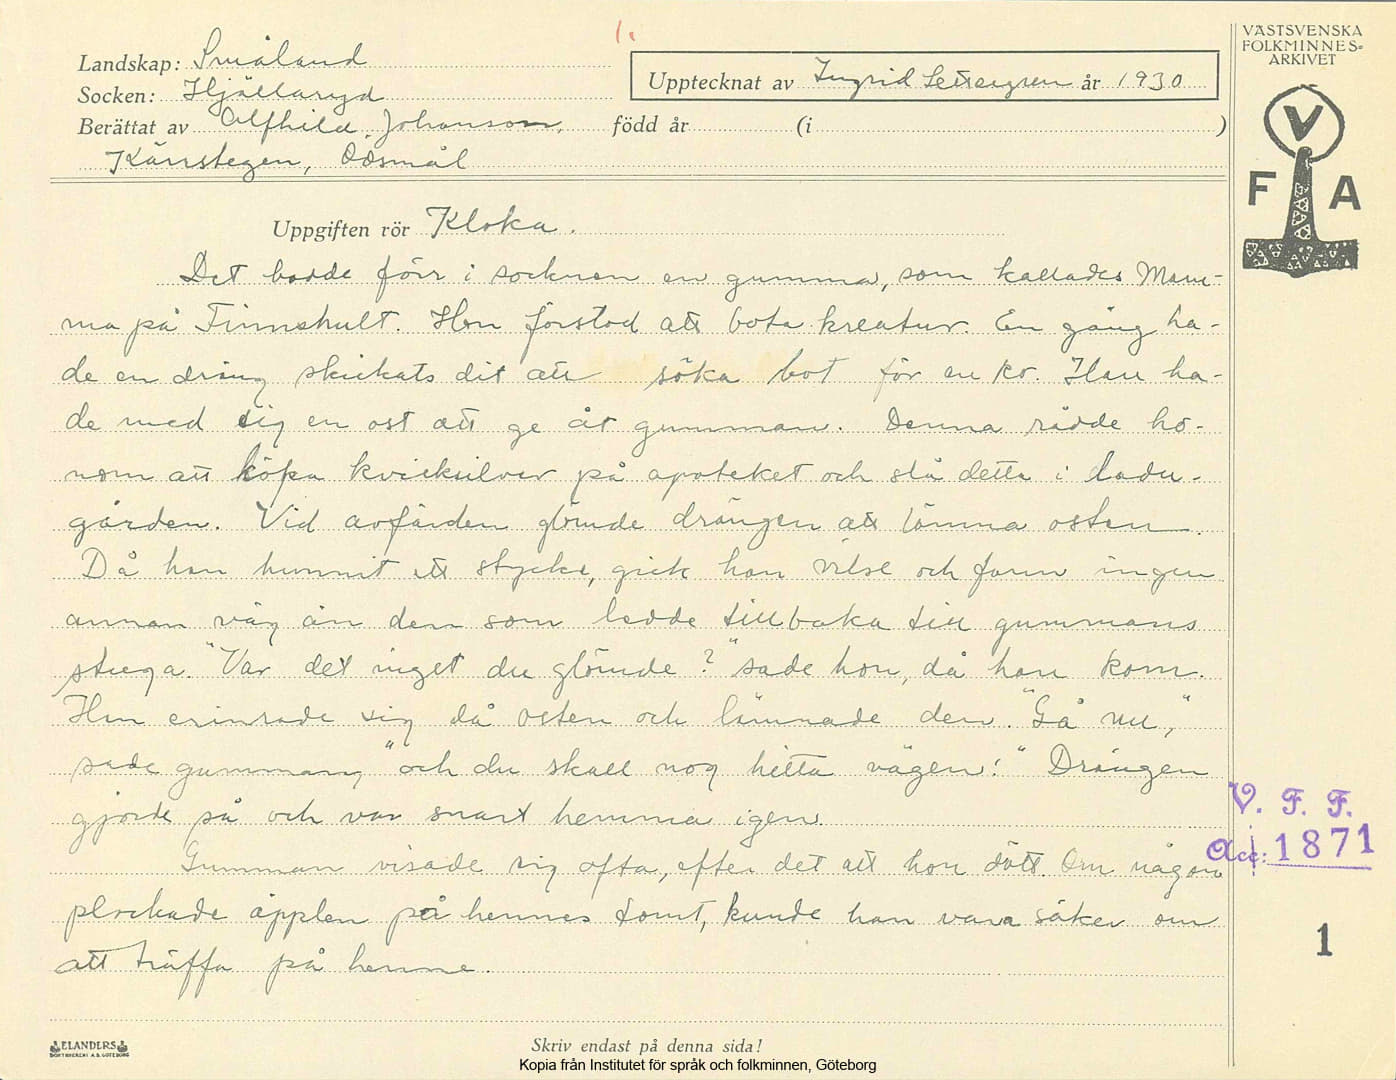 1.
VÄSTSVENSKA
FOLKMINNES-
ARKIVET
V
F A
Landskap: Småland
Socken: Hjälmaryd
Upptecknat av Ingrid år 1930
Berättat av Alfhild Johanson, född år (i )
Kärrstegen, Ödsmål
Uppgiften rör Kloka.
Det bodde förr i socknen en gumma, som kallades Mam-
ma på Finnshult. Hon förstod att bota kreatur. En gång ha-
de en dräng skickats dit att söka bot för en ko. Han ha-
de med sig en ost att ge åt gumman. Denna rådde ho-
nom att köpa kvicksilver på apoteket och slå detta i ladu-
gården. Vid avfärden glömde drängen att lämna osten.
Då han hunnit ett stycke, gick han vilse och fann ingen
annan väg än den som ledde tillbaka till gummans
stuga. "Var det inget du glömde?" sade hon, då han kom.
Han erinrade sig då osten och lämnade den. "Gå nu,"
sade gumman, "och du skall nog hitta vägen!" Drängen
gjorde så och var snart hemma igen.
Gumman visade sig ofta, efter det att hon dött. Om någon
plockade äpplen på hennes tomt, kunde han vara säker om
att träffa på henne.
V. F. F.
Acc: 1871
1
ELANDERS
BOKTRYCKERI A.B. GÖTEBORG
Skriv endast på denna sida!
Kopia från Institutet för språk och folkminnen, Göteborg